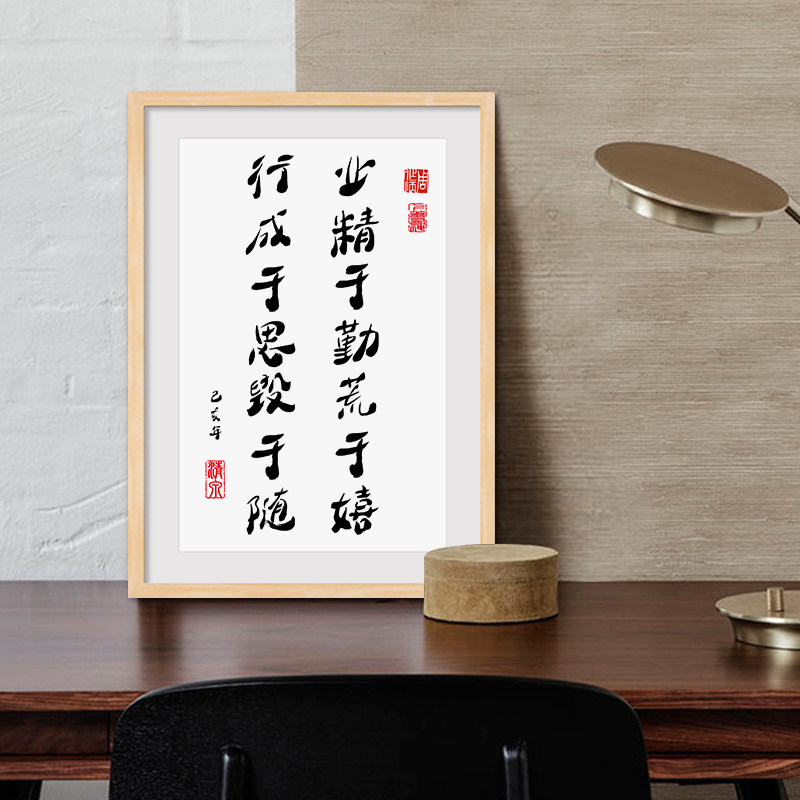 业精于勤荒于嬉
行成于思毁于随
己亥年